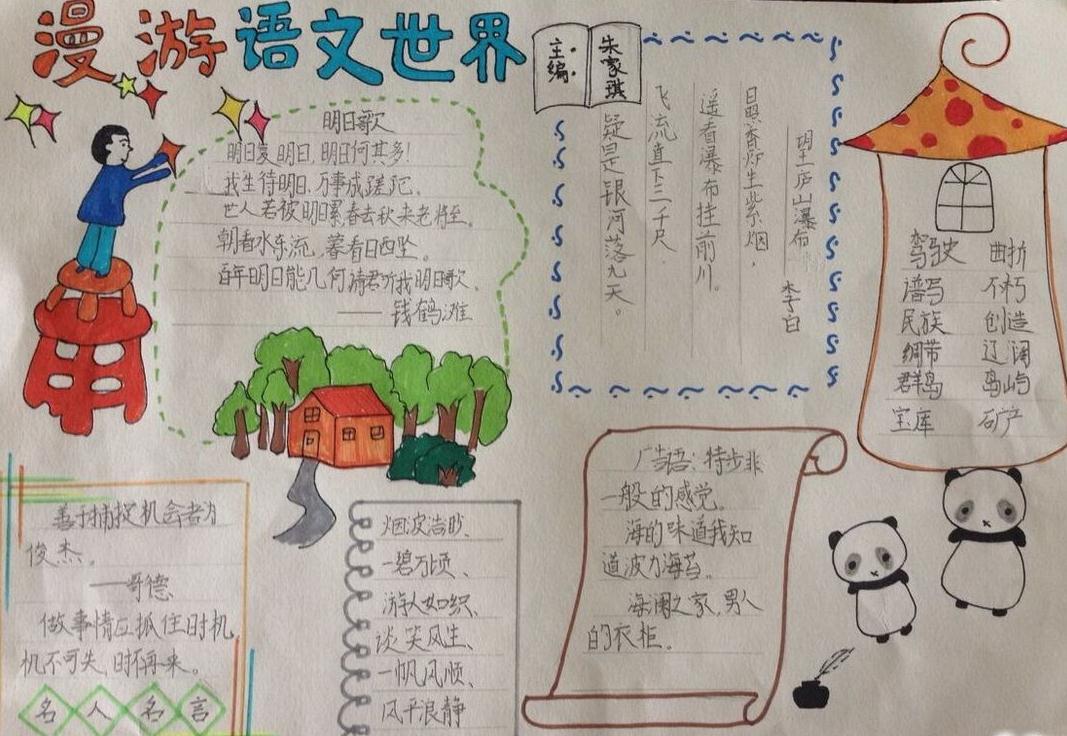 漫游语文世界
主编:
朱家琪
明日歌
明日复明日,明日何其多!
我生待明日,万事成蹉跎、
世人若被明日累,春去秋来老将至。
朝看水东流,暮看日西坠。
百年明日能几何请君听我明日歌、
——钱鹤滩
望庐山瀑布
李白
日照香炉生紫烟,
遥看瀑布挂前川。
飞流直下三千尺.
疑是银河落九天。
驾驶 曲折
谱写 不朽
民族 创造
绸带 辽阔
群岛 岛屿
宝库 矿产
善于捕捉机会者为
俊杰。
——哥德
做事情应抓住时机,
机不可失,时不再来。
名人名言
烟波浩眇、
一碧万顷、
游人如织、
谈笑风生、
一帆风顺、
风平浪静
广告语:特步非
一般的感觉。
海的味道我知
道波力海苔。
海澜之家,男人
的衣柜.